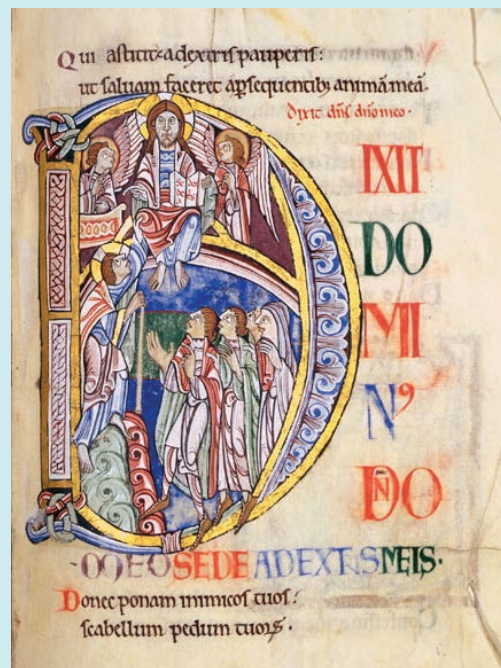 Qui astitit a dextris pauperis:
ut salvam faceret a psequentib; animā meā.
Dixit dn̄s dn̄o meo.
IXIT
DO
MI
N⁹
DŌ
MEO SEDE A DEXTRIS MEIS.
Donec ponam inimicos tuos:
scabellum pedum tuoꝝ.